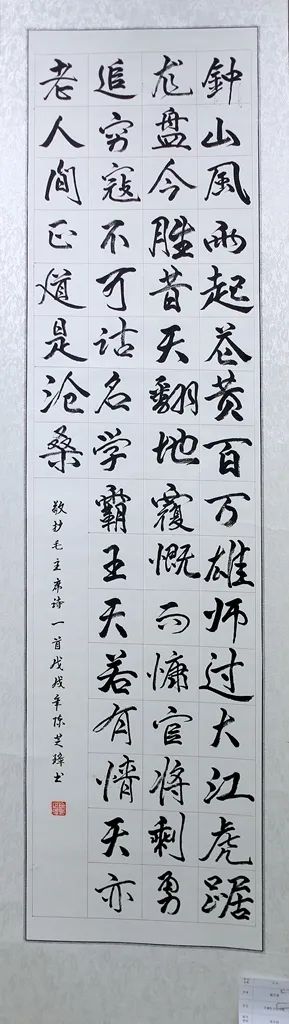 鐘山風雨起苍黄百万雄师过大江虎踞
龙盘今勝昔天翻地覆慨而慷宜将剩勇
追穷寇不可沽名学霸王天若有情天亦
老人间正道是沧桑
敬抄毛主席诗一首戊戌年陈芝璋书